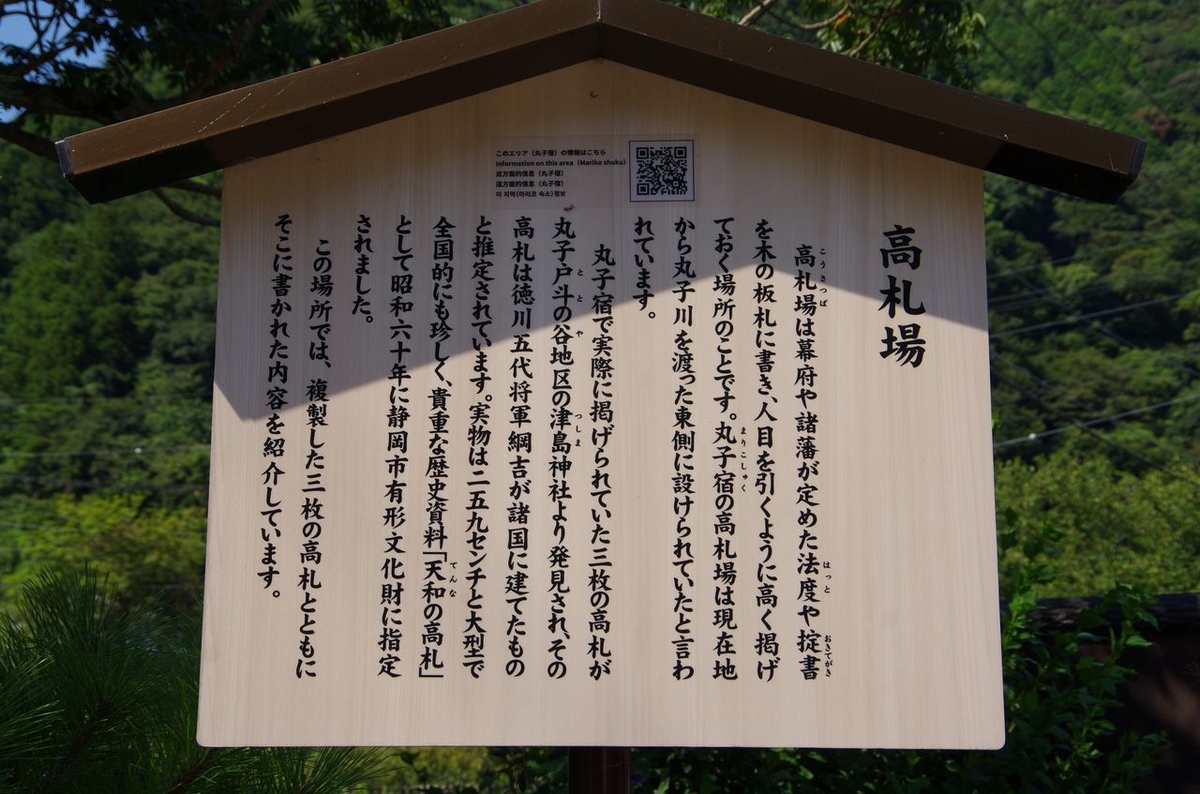 このエリア（丸子宿）の情報はこちら
Information on this area（Mariko shuku）
这方面的信息（丸子宿）
這方面的信息（丸子宿）
이 지역(마리코 숙소)정보
高札場
高札場は幕府や諸藩が定めた法度や掟書
こうさつば
はっと
おきてがき
を木の板札に書き、人目を引くように高く掲げ
ておく場所のことです。丸子宿の高札場は現在地
まりこしゅく
から丸子川を渡った東側に設けられていたと言わ
れています。
丸子宿で実際に掲げられていた三枚の高札が
丸子戸斗の谷地区の津島神社より発見され、その
ととや
つしま
高札は徳川五代将軍綱吉が諸国に建てたもの
と推定されています。実物は二五九センチと大型で
全国的にも珍しく、貴重な歴史資料「天和の高札」
てんな
として昭和六十年に静岡市有形文化財に指定
されました。
この場所では、複製した三枚の高札とともに
そこに書かれた内容を紹介しています。